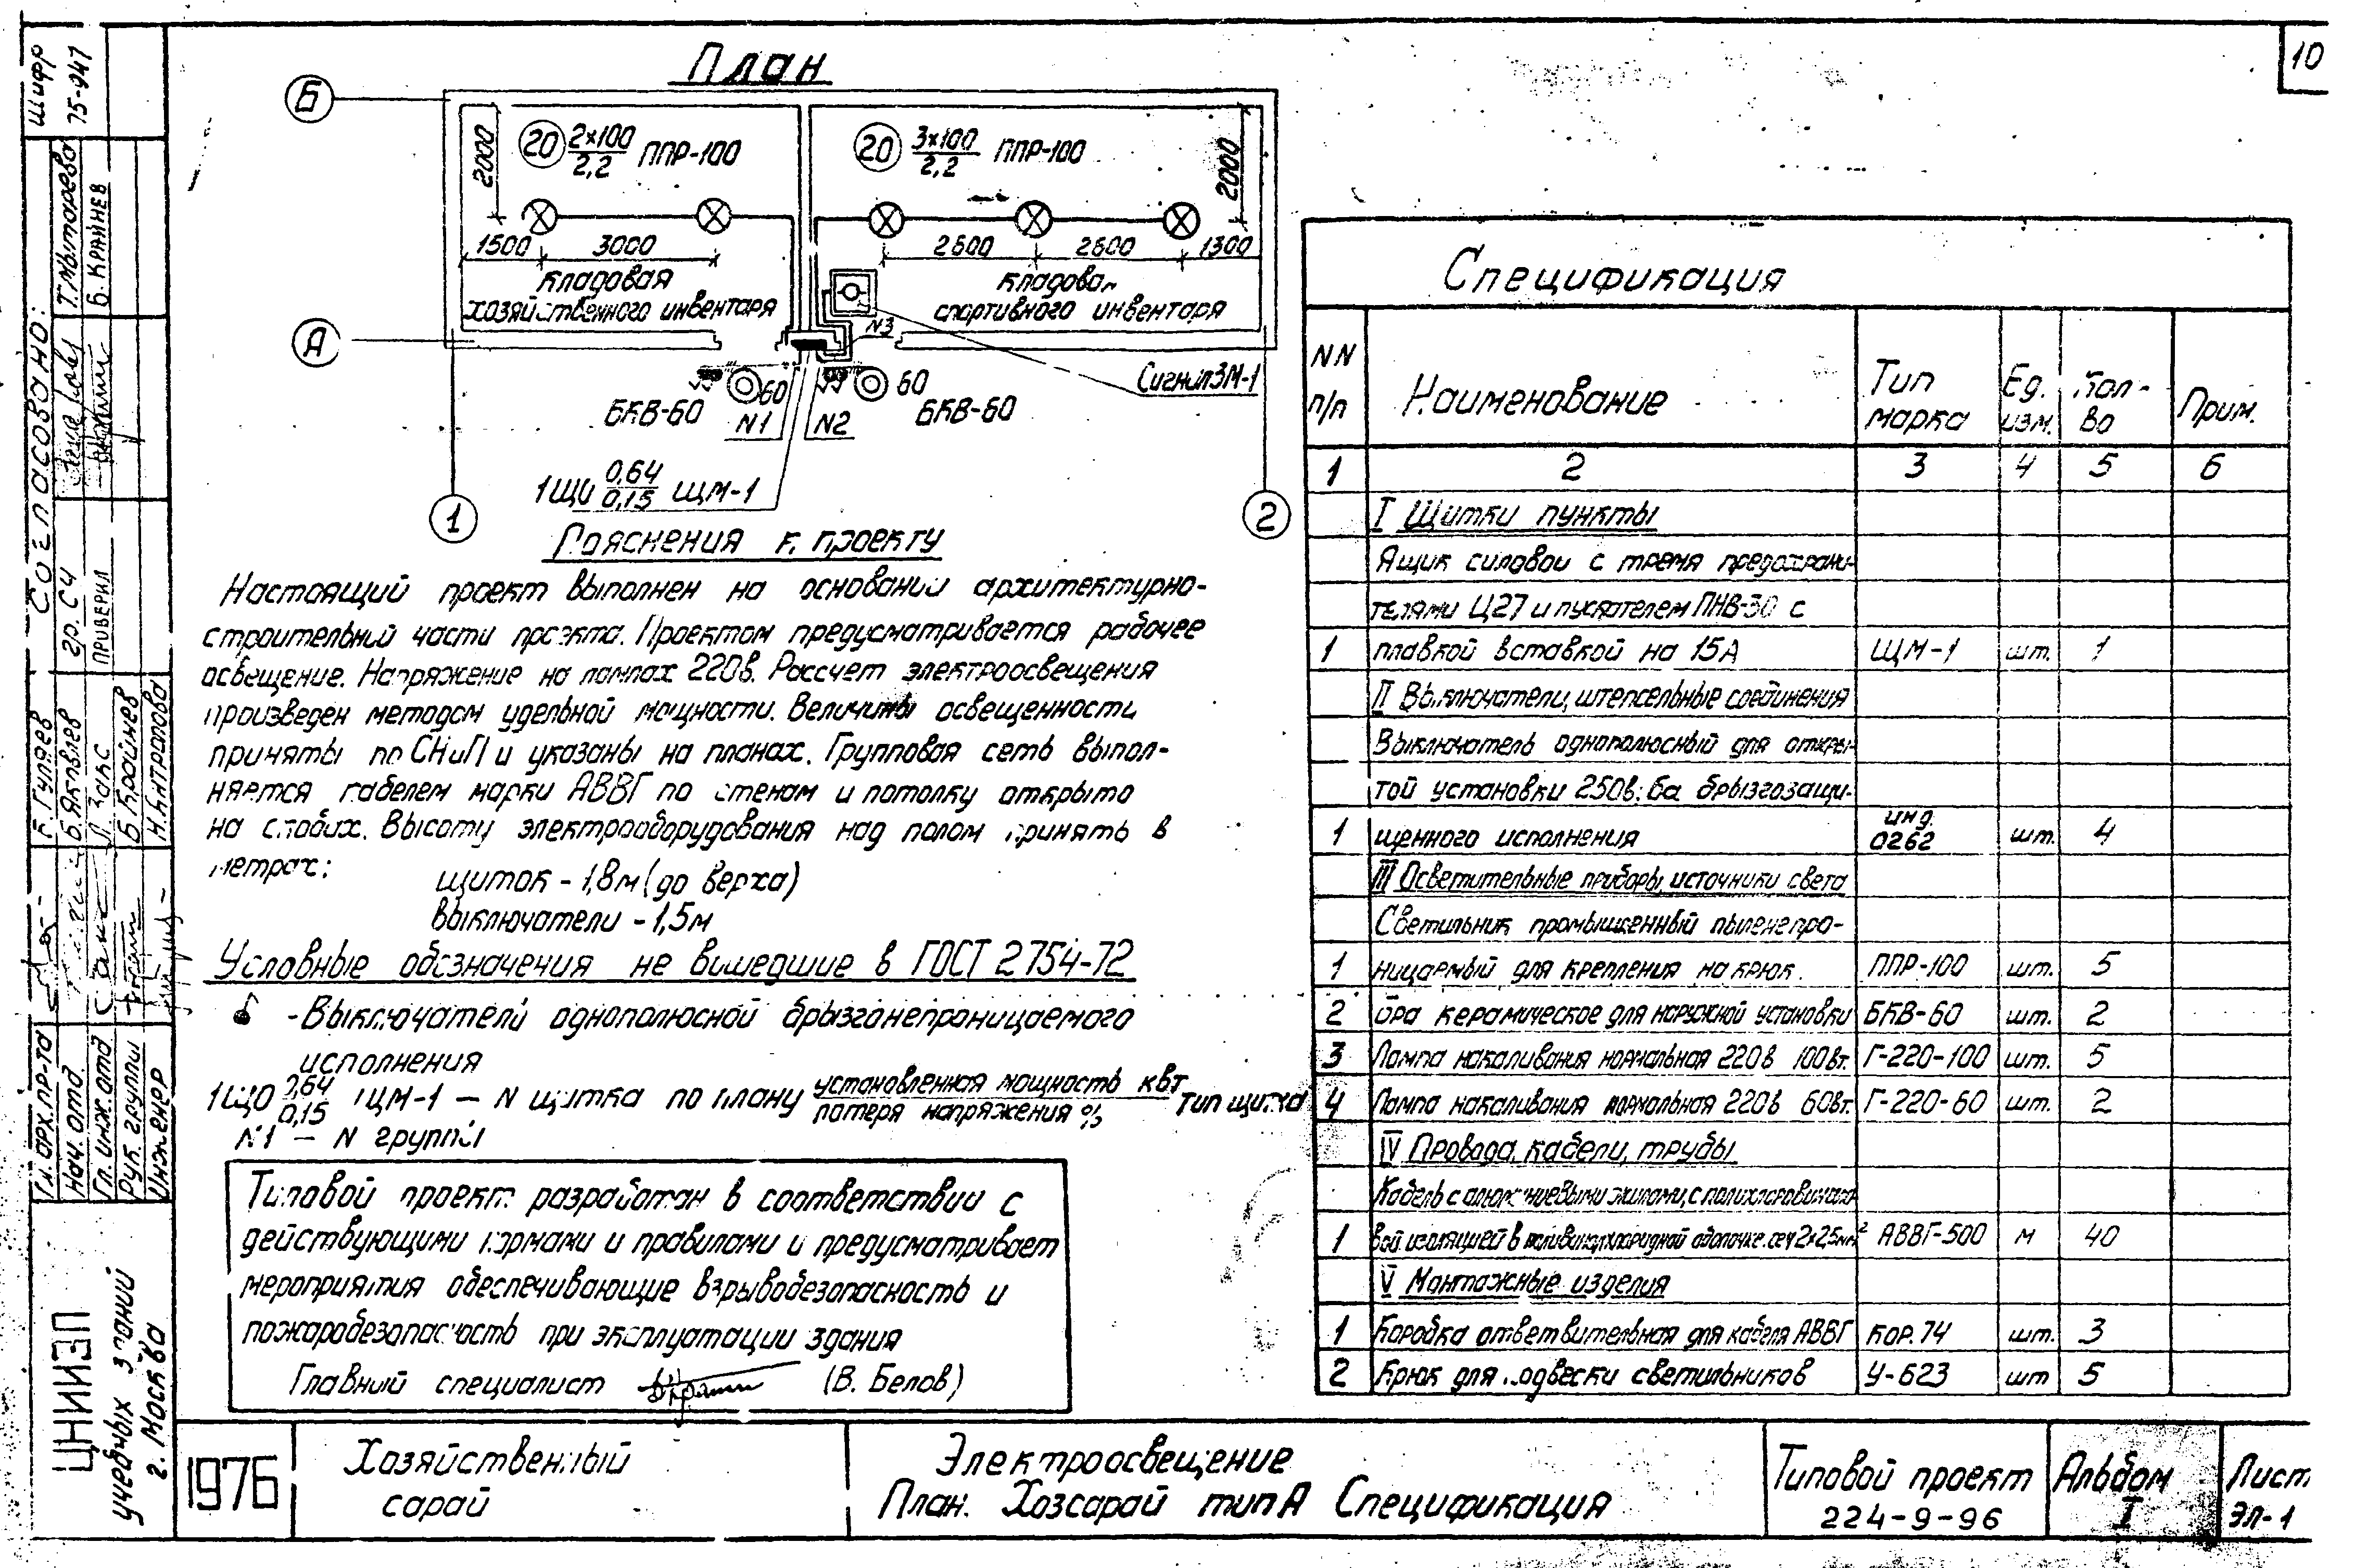 10
План
Б
20 2×100/2,2 ППР-100
20 3×100/2,2 ППР-100
2000
2000
1500 3000
2600 2600 1300
кладовая
хозяйственного инвентаря
кладовая
спортивного инвентаря
А
N3
Сигнал3М-1
60
60
БКВ-60 N1 N2 БКВ-60
1ЩО 0,64/0,15 ЩМ-1
1
2
Пояснения к проекту
Настоящий проект выполнен на основании архитектурно-
строительний части проэкта. Проектом предусматривается рабочее
освещение. Напряжение на лампах 220в. Рассчет электроосвещения
произведен методом удельной мощности. Величины освещенности
приняты по СНиП и указаны на планах. Групповая сеть выпол-
няется кабелем марки АВВГ по стенам и потолку открыто
на скобах. Высоту электрооборудования над полом принять в
метрах:
щиток - 1,8м (до верха)
выключатели - 1,5м
Условные обозначения не вишедшие в ГОСТ 2754-72
- Выключатели однополюсной брызгонепроницаемого
исполнения
1ЩО 0,64/0,15 ЩМ-1 — N щитка по плану установленная мощность квт/потеря напряжения % Тип щитка
N1 — N группы
Типовой проект разработан в соответствии с
действующими нормами и правилами и предусматривает
мероприятия обеспечивающие взрыводезопасность и
пожаробезопасность при эксплуатации здания
Главний специалист (В. Белов)
Спецификация
NN п/п Наименование Тип марка Ед. изм. Кол-во Прим.
1 2 3 4 5 6
I Щитки пункты
Ящик силовой с тремя предохрани-
телями Ц27 и пускателем ПНВ-30 с
1 плавкой вставкой на 15А ЩМ-1 шт. 1
II Выключатели, штепсельные соединения
Выключатель однополюсный для откры-
той установки 250в: 6а брызгозащи-
1 щенного исполнения инд. 0262 шт. 4
III Осветительные приборы, источники света
Светильник промышленный пыленепро-
1 ницаемый для крепления на крюк. ППР-100 шт. 5
2 бра керамическое для наружной установки БКВ-60 шт. 2
3 Лампа накаливания нормальная 220в 100вт. Г-220-100 шт. 5
4 Лампа накаливания нормальная 220в 60вт. Г-220-60 шт. 2
IV Провода, кабели, трубы
Кабель с алюминиевыми жилами, с полихлорвинило-
1 вой изоляцией в поливинилхлоридной оболочке. сеч 2×2,5мм² АВВГ-500 м 40
V Монтажные изделия
1 Коробка ответвительная для кабеля АВВГ КОР. 74 шт. 3
2 Крюк для подвески светильников У-623 шт 5
Шифр
75-947
Согласовано:
Т. Мыторева
Б. КРАЙНЕВ
гр. СЧ
ПРИВЕРИЛ
Гл. арх. пр-та Г. Гуляев
Нач. отд Б. Яковлев
Гл. инж. отд Л. Закс
Рук. группы Б. Крайнев
Инженер Н. Антропова
ЦНИИЭП
учебных зданий
г. Москва
1976
Хозяйственный
сарай
Электроосвещение
План. Хозсарай тип А Спецификация
Типовой проект
224-9-96
Альбом
I
Лист
ЭЛ-1